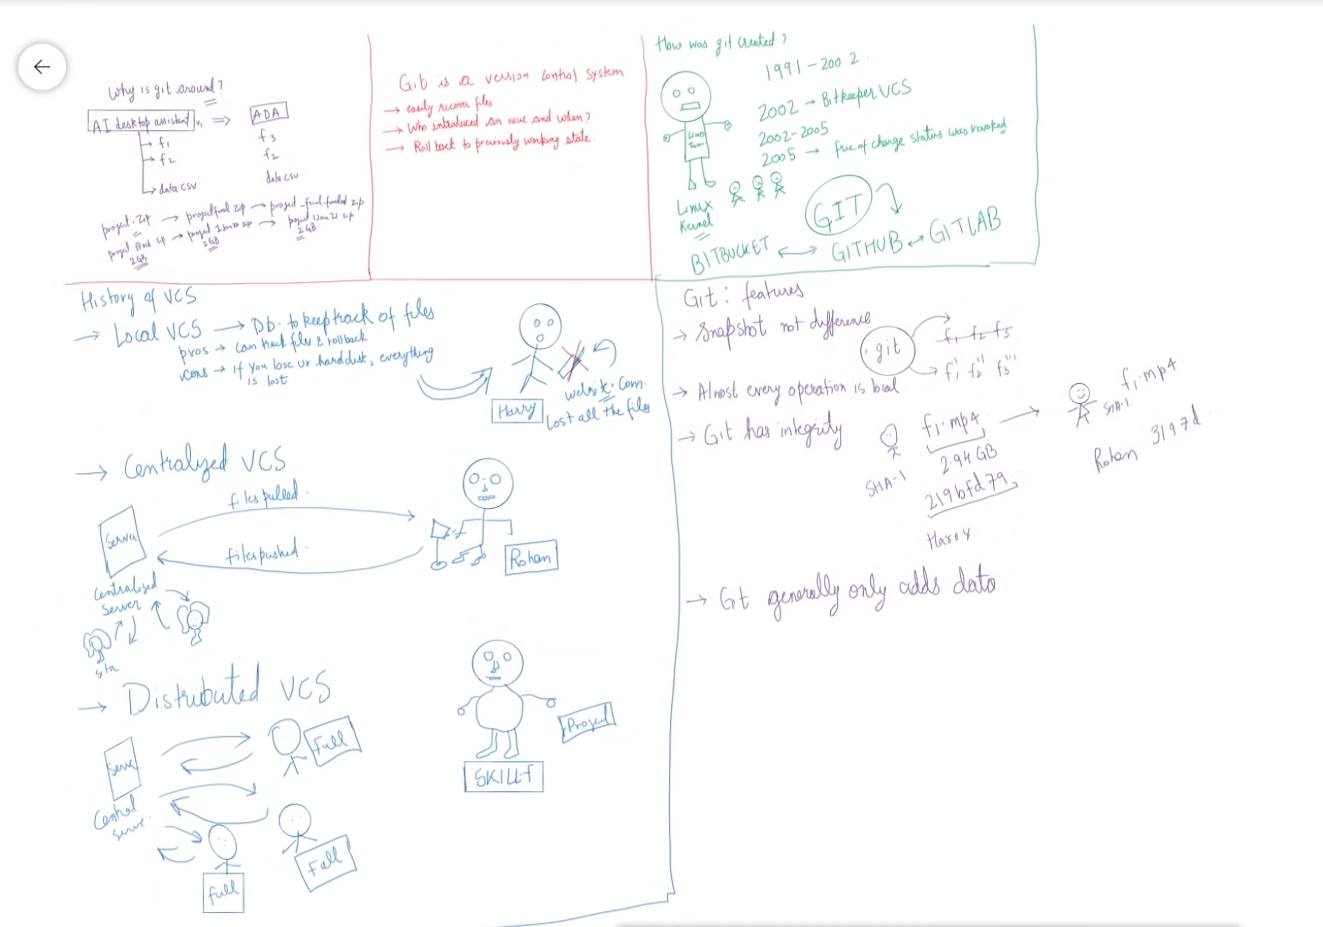 Why is git around?
AI desktop assistant v1 ⇒ ADA
→ f1
→ f2
→ data csv
f3
f2
data csv
project.zip → projectfinal zip → project
project final zip → project
2GB
2GB
2GB
Git is a version control system
→ easily recover files
→ Who introduced an issue and when?
→ Roll back to previously working state.
How was git created?
1991-2002
2002 → Bitkeeper VCS
2002-2005
2005 → free of charge status was revoked
Linux
Kernel
GIT
BITBUCKET ↔ GITHUB ↔ GITLAB
History of VCS
→ Local VCS → Db. to keep track of files
pros → can track files & rollback
cons → if you lose ur hard disk, everything
is lost
Harry
website.com
Lost all the files
→ Centralized VCS
files pulled.
files pushed.
Server
Centralized
Server
Rohan
→ Distributed VCS
Server
Central
Full
Full
Full
SKILLF
Project
Git: features
→ Snapshot not difference
git
f1 f2 f3
f1' f2'' f3'''
→ Almost every operation is local
→ Git has integrity
SHA-1
f1.mp4
2.94 GB
219bfd79
Harry
f1.mp4
SHA-1
Rohan 3197d
→ Git generally only adds data